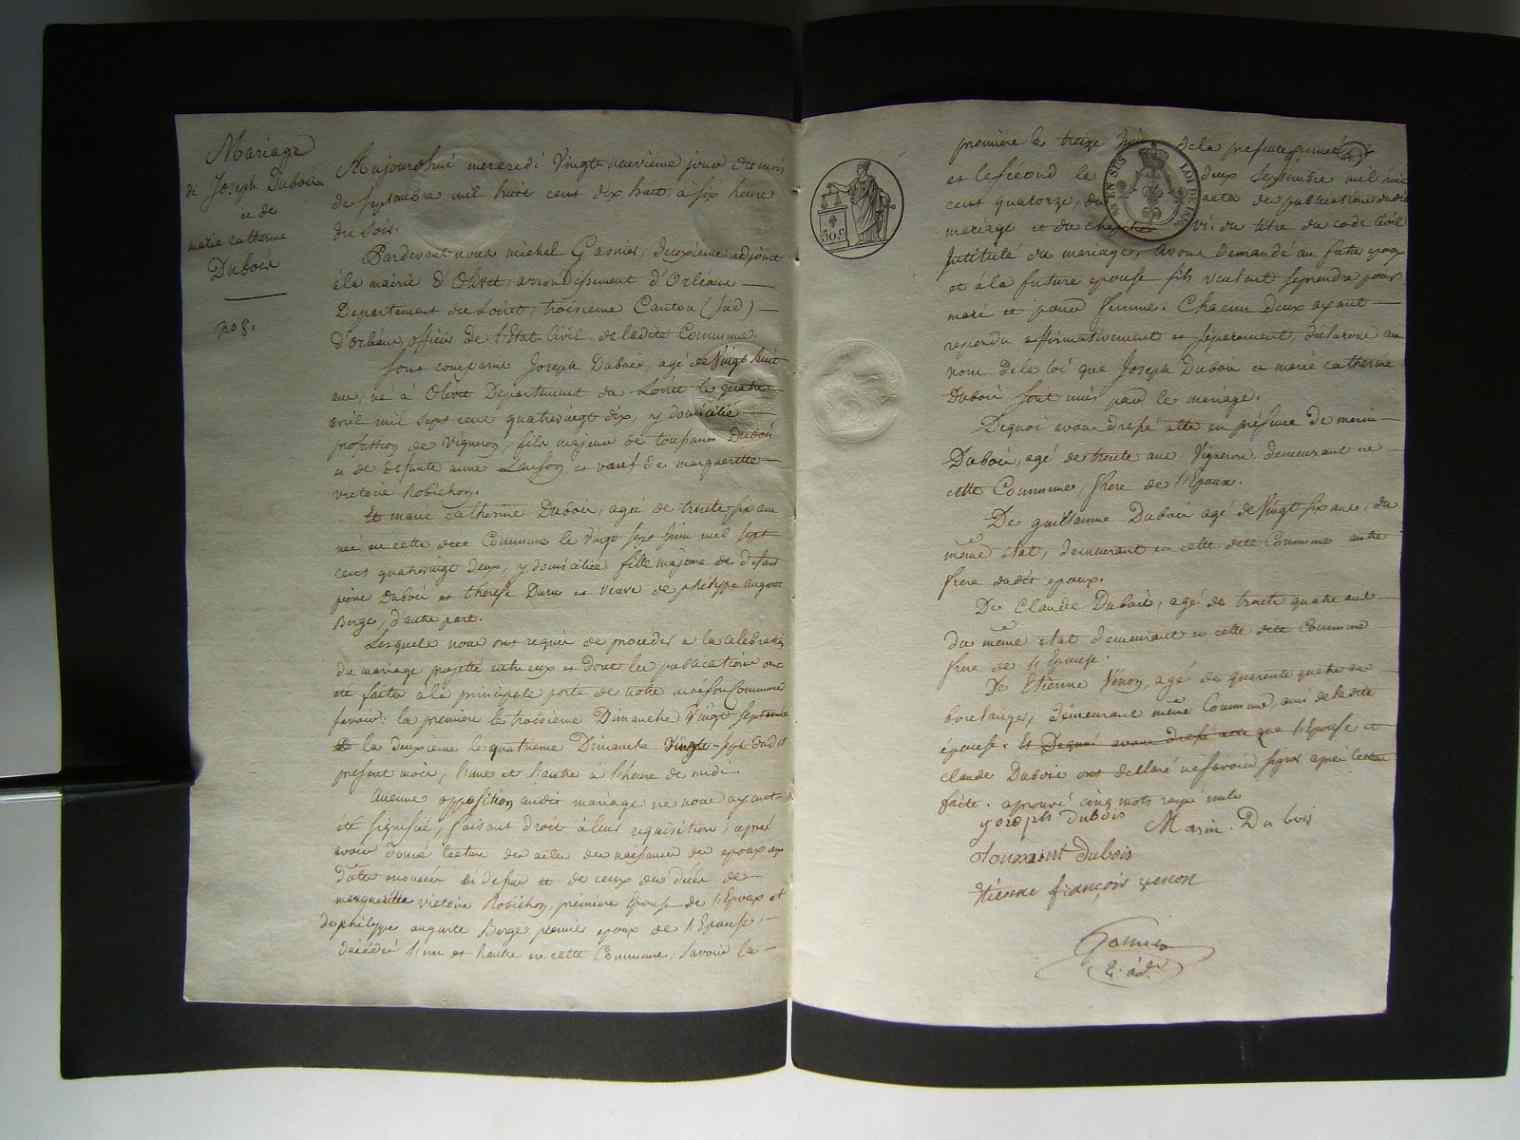 Mariage
de Joseph Dubois
et de
marie catherine
Dubois
no 8.
Aujourdhui mercredi Vingt neuvieme jour du mois
de Septembre mil huit cent dix huit a six heure
du Soir.
Pardevant nous michel Garnier, deuxieme adjoint
à la mairie d'Olivet, arrondissement d'Orléans
Departement du Loiret, troisieme Canton (sud)
d'orléans, officier de l'Etat Civil de ladite Commune.
Sont comparus Joseph Dubois, agé de Vingt huit
ans, né à Olivet Departement du Loiret le quatre
avril mil sept cent quatrevingt dix, y domicilié
profession de Vigneron, fils majeur de toussaint Dubois
et de defunte anne et veuf de margueritte
victoire Robichon.
Et marie Catherine Dubois, agée de trente six ans
née en cette dite Commune le Vingt sept Juin mil sept
cent quatrevingt deux, y domiciliée fille majeure de defunt
pierre Dubois et thérese et veuve de phelippe auguste
Berge, d'autre part.
Lesquels nous ont requis de proceder a la celebration
du mariage projetté entre eux et dont les publications ont
été faites à la principale porte de notre maison Commune
savoir: la premiere le troisieme Dimanche Vingt Septembre
et la deuxieme le quatrieme Dimanche Vingt-sept dudit
present mois, l'une et l'autre à l'heure de midi.
Aucune opposition audit mariage ne nous ayant
été signifiée, faisant droit à leur requisition, apres
avoir donné lecture des actes de naissance des epoux
de ceux du décés de
margueritte victoire Robichon, premiere epouse de l'Epoux et
de phelippe auguste Berge premier epoux de l'Epouse,
décédés l'un et l'autre en cette Commune, savoir la
premiere le treize Juin de la presente année
et le second le deux Septembre mil huit
cent quatorze, de l'acte de publication dudit
mariage et du chapitre vi. du titre du code Civil
Intitulé du mariage, avons demandé au futur epoux
et à la future epouse s'ils veulent se prendre pour
mari et pour femme. Chacun deux ayant
repondu affirmativement et séparement, declarons au
nom de la loi que Joseph Dubois et marie catherine
Dubois sont unis par le mariage.
De quoi avons dressé acte en présence de marin
Dubois, agé de trente ans Vigneron demeurant en
cette Commune, frere de l'Epoux.
De guillaume Dubois agé de Vingt six ans, du
même etat, demeurant en cette dite Commune autre
frere dudit epoux.
De Claude Dubois, agé de trente quatre ans
du même etat demeurant en cette dite Commune
frere de l'Epouse.
De Etienne Venon, agé de quarente quatre ans
boulanger, demeurant même Commune, ami de la dite
épouse. Et De quoi avons dressé acte que l'Epouse et
Claude Dubois ont declaré ne savoir signer apres lecture
faite. aprouvé cinq mots rayé nuls
yoseph dubois
Marin. Dubois
toussaint dubois
étienne françois venon
Garnier
2. adt.